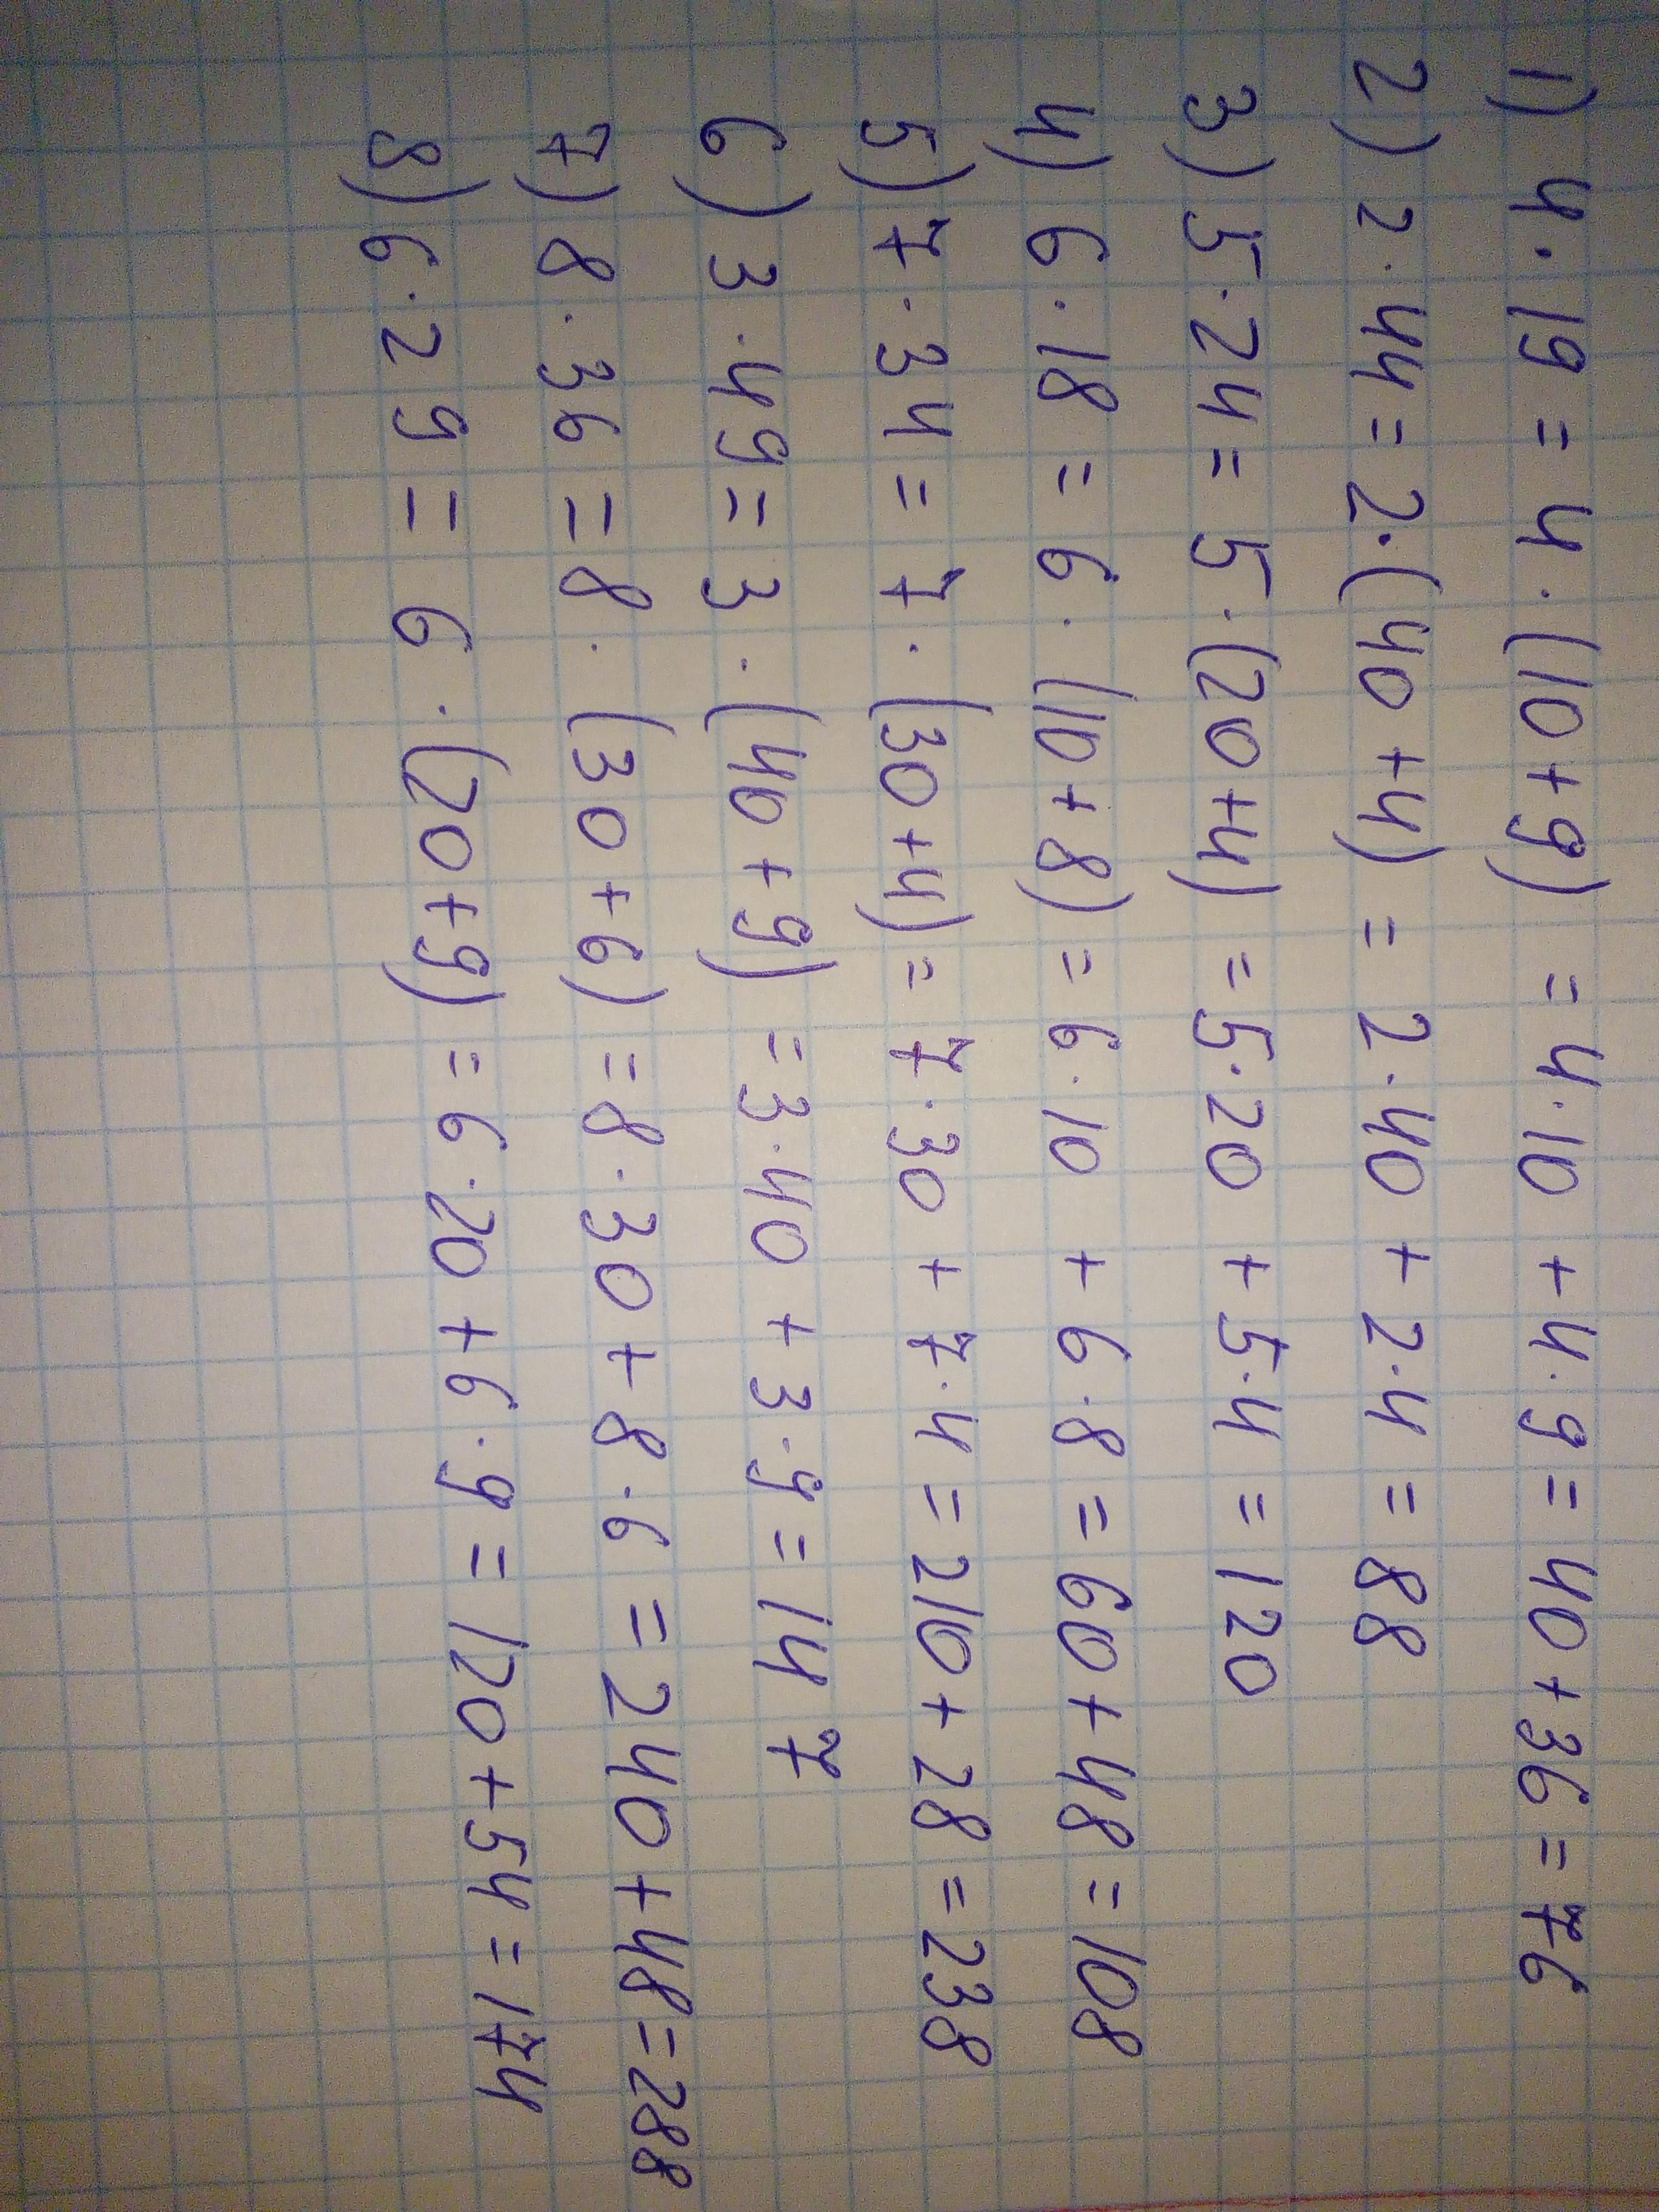 1) 4 · 19 = 4 · (10 + 9) = 4 · 10 + 4 · 9 = 40 + 36 = 76
2) 2 · 44 = 2 · (40 + 4) = 2 · 40 + 2 · 4 = 88
3) 5 · 24 = 5 · (20 + 4) = 5 · 20 + 5 · 4 = 120
4) 6 · 18 = 6 · (10 + 8) = 6 · 10 + 6 · 8 = 60 + 48 = 108
5) 7 · 34 = 7 · (30 + 4) = 7 · 30 + 7 · 4 = 210 + 28 = 238
6) 3 · 49 = 3 · (40 + 9) = 3 · 40 + 3 · 9 = 147
7) 8 · 36 = 8 · (30 + 6) = 8 · 30 + 8 · 6 = 240 + 48 = 288
8) 6 · 29 = 6 · (20 + 9) = 6 · 20 + 6 · 9 = 120 + 54 = 174